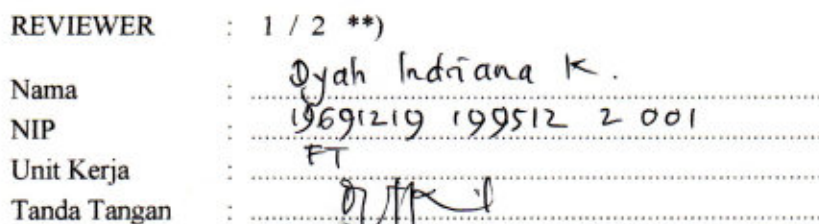 REVIEWER : 1 / 2 **)
Nama : Dyah Indriana K.
NIP : 19691219 199512 2 001
Unit Kerja : FT
Tanda Tangan :